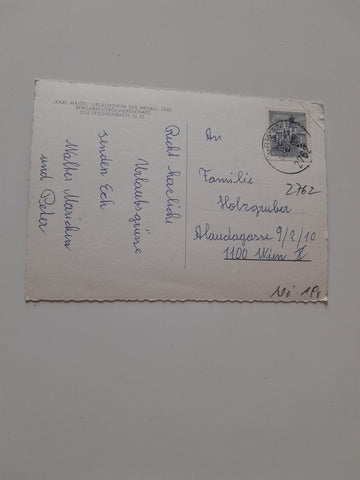 "KARL MAISEL"-URLAUBSHEIM DER METALL- UND
BERGARBEITERGEWERKSCHAFT
2762 FEICHTENBACH, N.-Ö.
Recht herzliche
Urlaubsgrüsse
senden Ech
Walter Marichen
und Peter
An
Familie
2762
Holzgruber
Alaudagasse 9/2/10
1100 Wien X